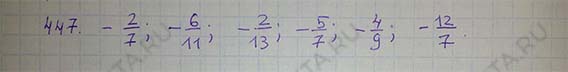 447. -2/7; -6/11; -2/13; -5/7; -4/9; -12/7.